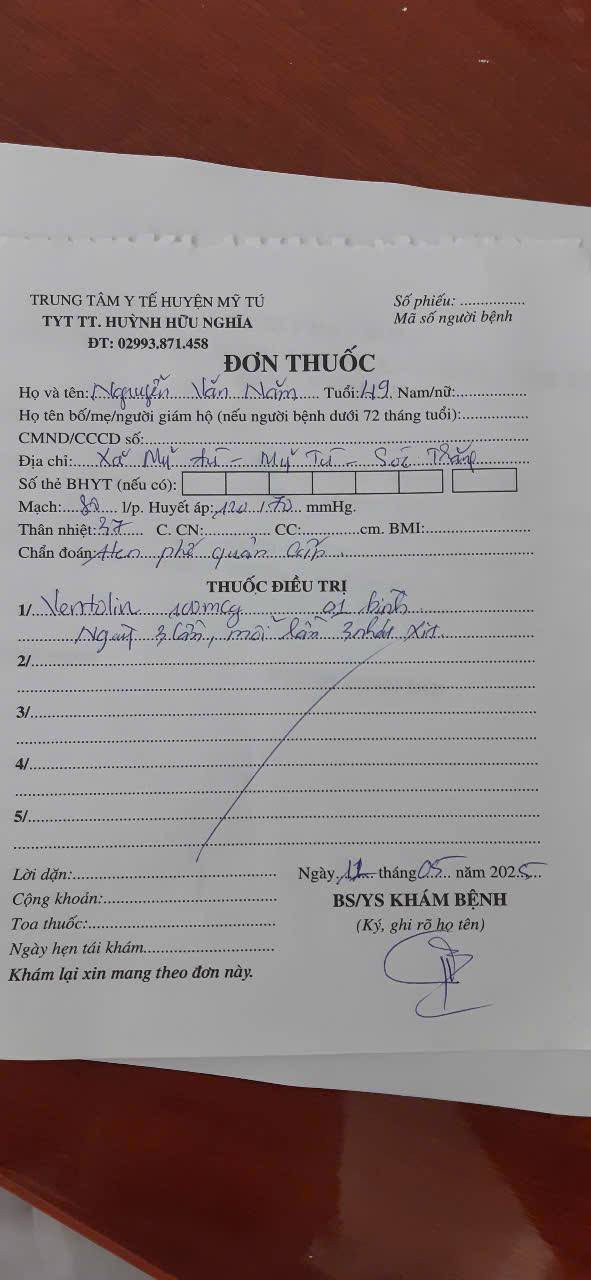 TRUNG TÂM Y TẾ HUYỆN MỸ TÚ
TYT TT. HUỲNH HỮU NGHĨA
ĐT: 02993.871.458
Số phiếu: ................
Mã số người bệnh
ĐƠN THUỐC
Họ và tên: Nguyễn Văn Năm Tuổi: 49 Nam/nữ:
Họ tên bố/mẹ/người giám hộ (nếu người bệnh dưới 72 tháng tuổi):
CMND/CCCD số:
Địa chỉ: Xã Mỹ Tú - Mỹ Tú - Sóc Trăng
Số thẻ BHYT (nếu có):
Mạch: 80 l/p. Huyết áp: 120 / 70 mmHg.
Thân nhiệt: 37 C. CN: CC: cm. BMI:
Chẩn đoán: Hen phế quản
THUỐC ĐIỀU TRỊ
1/ Ventolin 100mcg 01 bình
Ngày 3 lần, mỗi lần 3 nhát xịt
2/
3/
4/
5/
Lời dặn:
Cộng khoản:
Toa thuốc:
Ngày hẹn tái khám
Khám lại xin mang theo đơn này.
Ngày 11 tháng 05 năm 2025
BS/YS KHÁM BỆNH
(Ký, ghi rõ họ tên)